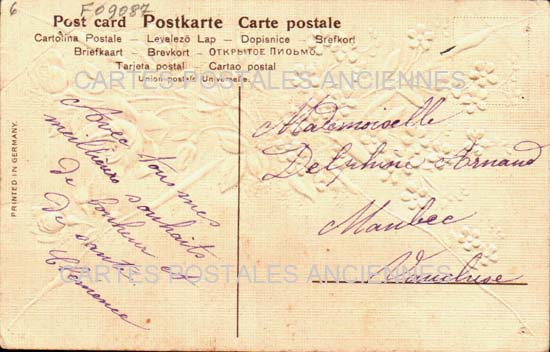 6
F09087
Post card Postkarte Carte postale
Cartolina Postale – Levelező Lap – Dopisnice – Brefkort
Briefkaart – Brevkort – ОТКРЫТОЕ ПИСЬМО.
Tarjeta postal – Cartao postal
Union postale Universelle.
CARTES POSTALES ANCIENNES
PRINTED IN GERMANY.
Avec tous mes
meilleurs souhaits
de bonheur et
de santé
Clémence
Mademoiselle
Delphine Arnaud
Maubec
Vaucluse
CARTES POSTALES ANCIENNES